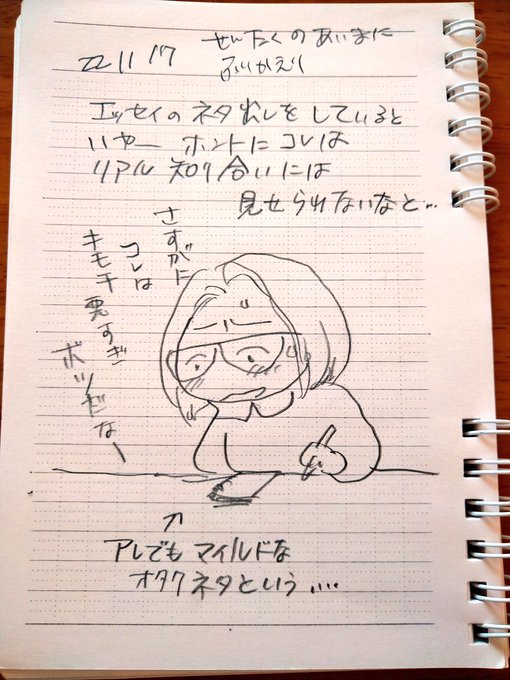 22 11 17
せんたくのあいまに
ふりかえり
エッセイのネタ出しをしていると
いやー ホントにコレは
リアル知り合いには
見せられないなと…
さすがに
コレは
キモチ悪すぎ
ボツだなー
↑
アレでもマイルドな
オタクネタという….